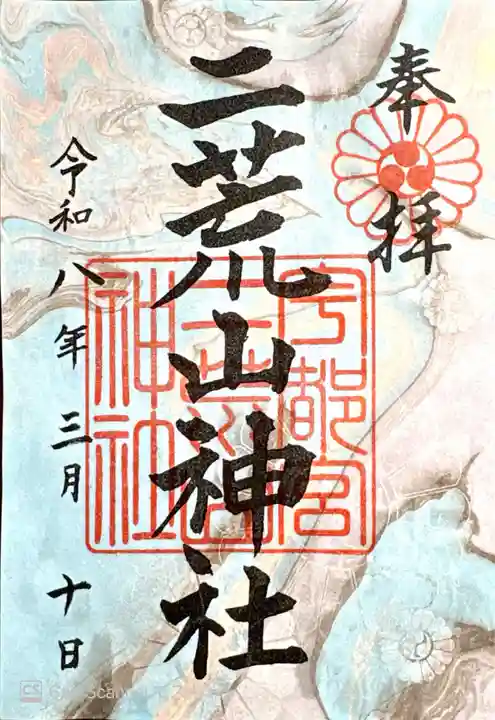 奉拝
二荒山神社
宇都宮
二荒山
神社
令和八年三月十日
CS CamScanner